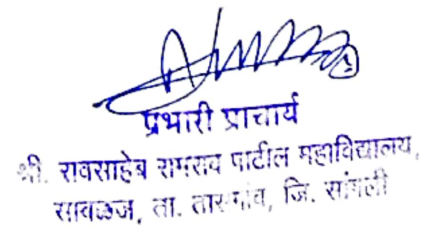 प्रभारी प्राचार्य
श्री. रावसाहेब रामराव पाटील महाविद्यालय,
सावळज, ता. तासगांव, जि. सांगली